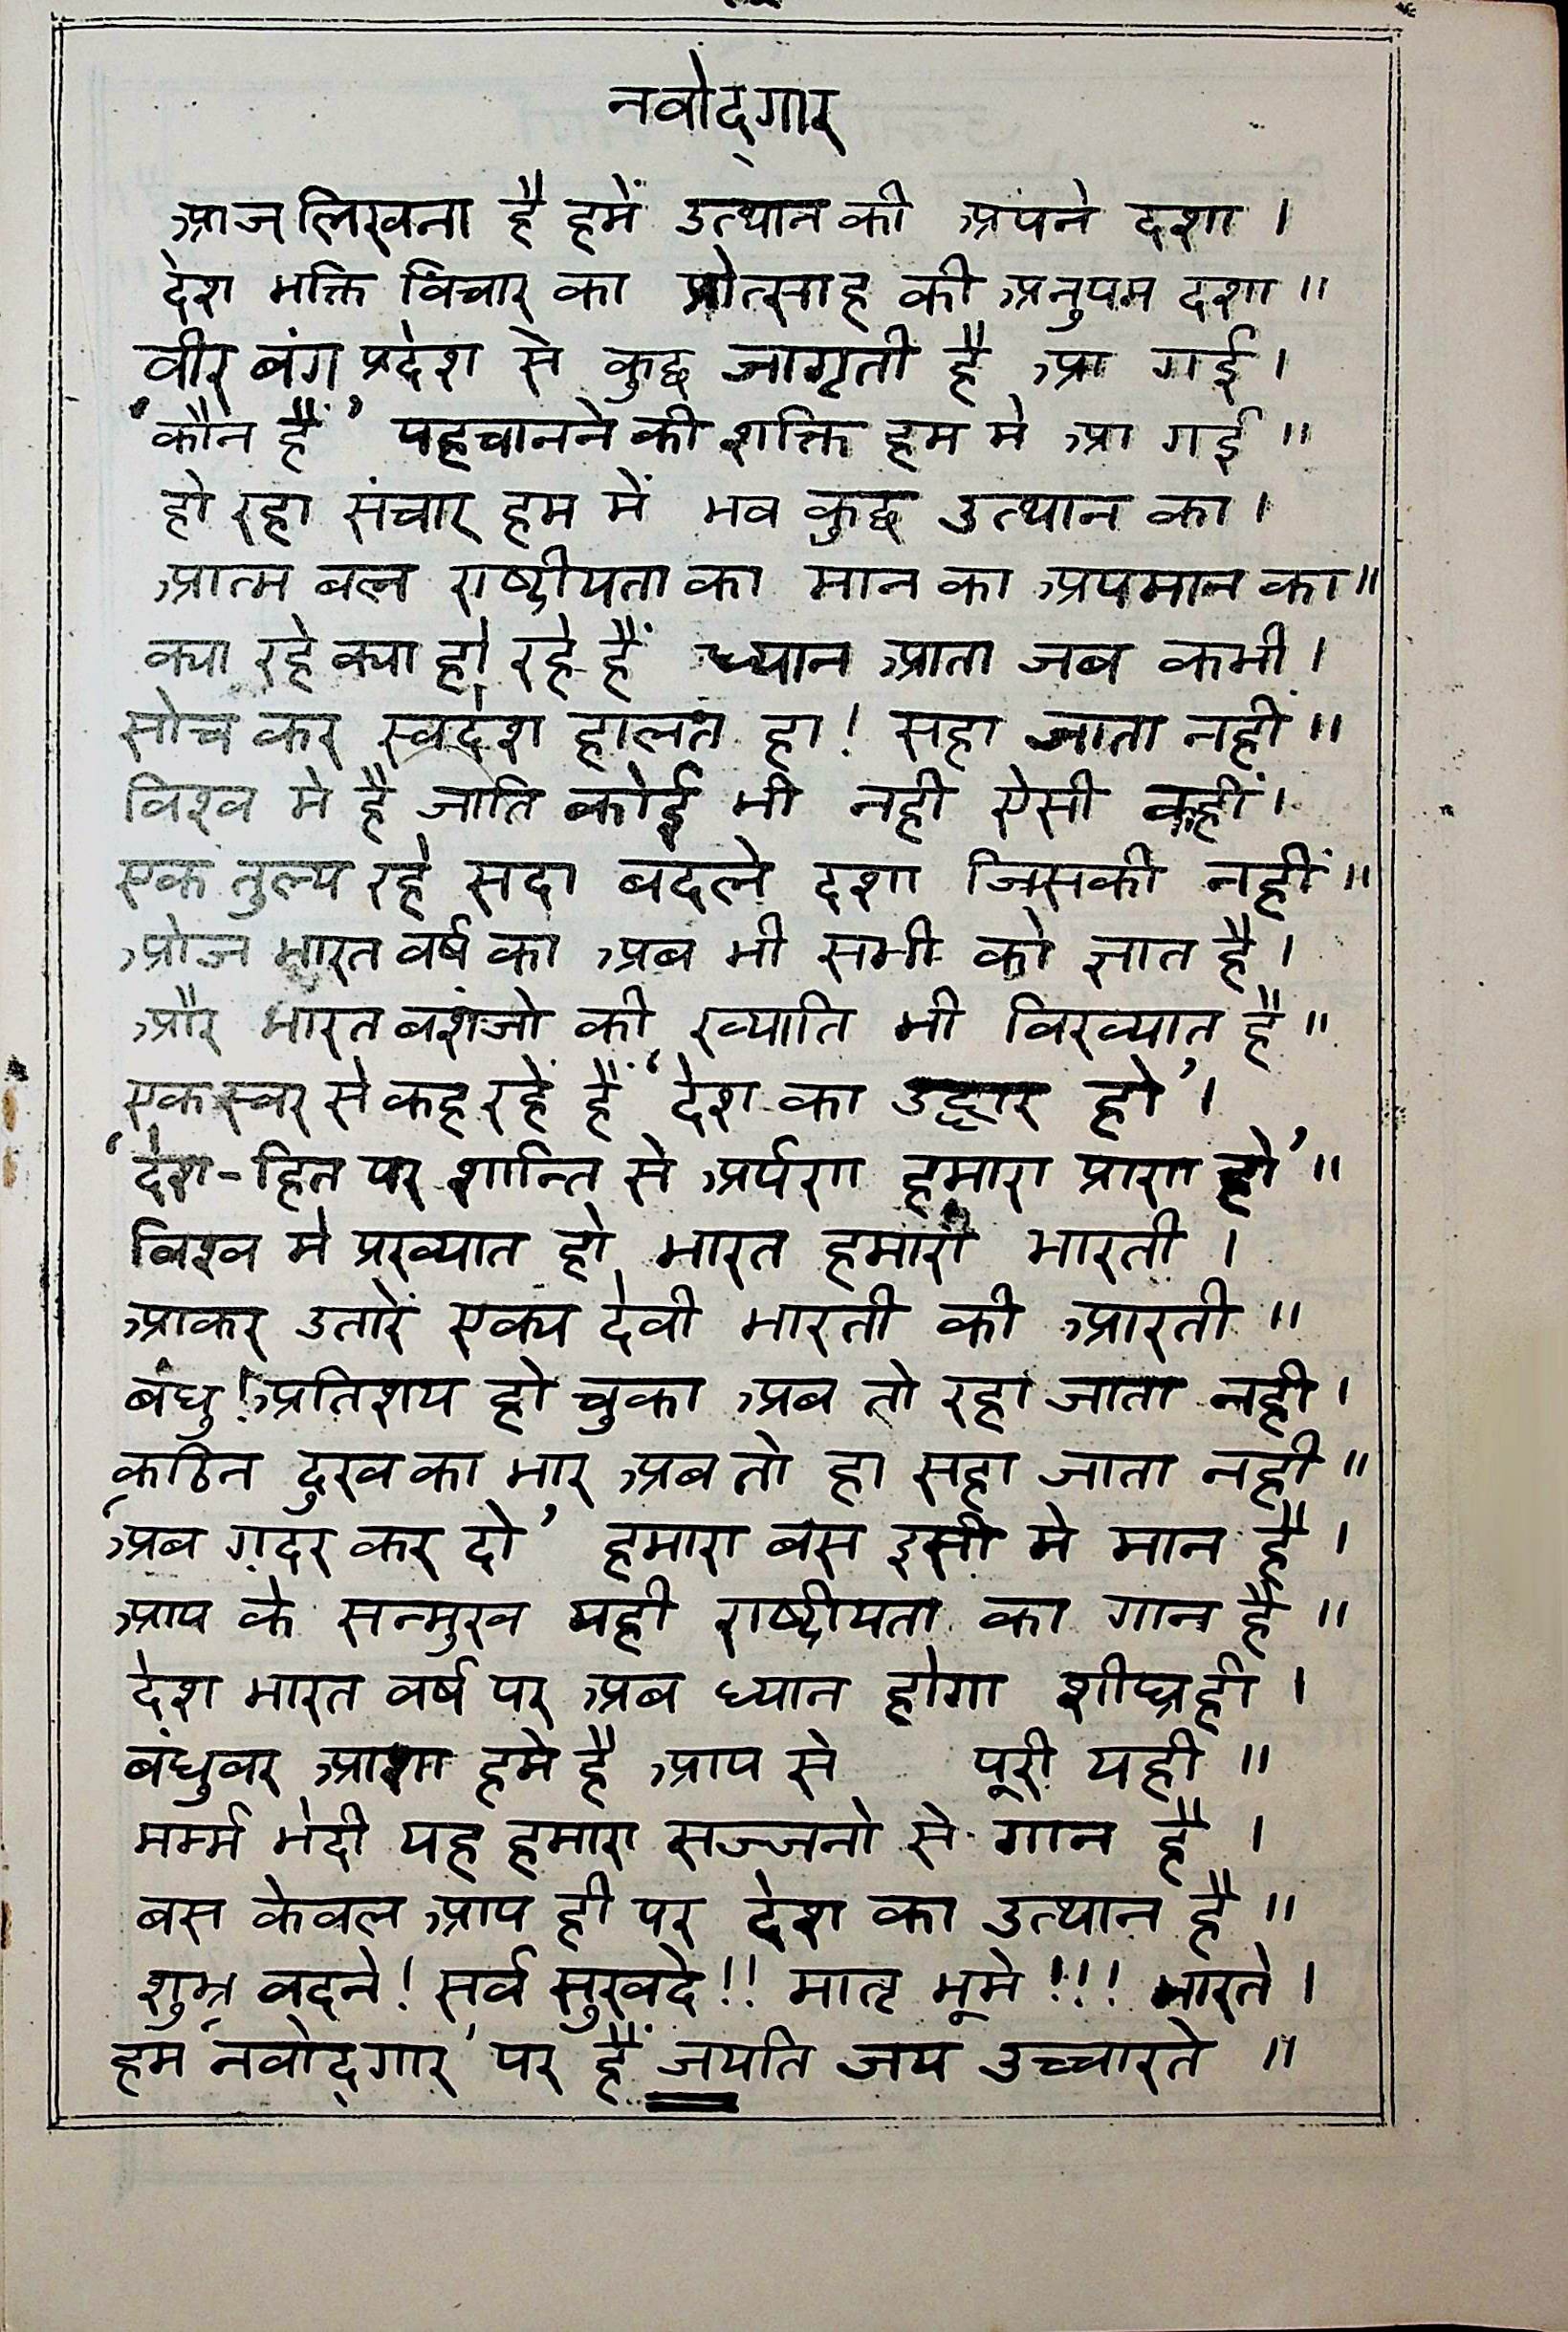 नवोद्गार
आज लिखना है हमें उत्थान की अपने दशा ।
देश भक्ति विचार का प्रोत्साह की अनुपम दशा ॥
वीर बंग प्रदेश से कुछ जागृती है आ गई ।
'कौन हैं' पहचानने की शक्ति हम मे आ गई ॥
हो रहा संचार हम में भव कुछ उत्थान का ।
आत्म बल राष्ट्रीयता का मान का अपमान का ॥
क्या रहे क्या हो रहे हैं ध्यान आता जब कभी ।
सोच कर स्वदेश हालत हा ! सहा जाता नहीं ॥
विश्व मे है जाति कोई भी नही ऐसी कहीं ।
एक तुल्य रहे सदा बदले दशा जिसकी नहीं ॥
ओज भारत वर्ष का अब भी सभी को ज्ञात है ।
और भारत बशंजो की ख्याति भी विख्यात है ॥
एक स्वर से कह रहें हैं 'देश का उद्धार हो' ।
'देश-हित पर शान्ति से अर्पण हमारा प्राण हो' ॥
विश्व मे प्रख्यात हो भारत हमारी भारती ।
आकर उतारें एक्य देवी भारती की आरती ॥
बंधु ! अतिशय हो चुका अब तो रहा जाता नही ।
कठिन दुख का भार अब तो हा सहा जाता नही ॥
'अब ग़दर कर दो' हमारा बस इसी मे मान है ।
आप के सन्मुख यही राष्ट्रीयता का गान है ॥
देश भारत वर्ष पर अब ध्यान होगा शीघ्रही ।
बंधुवर आशा हमे है आप से पूरी यही ॥
मर्म्म भेदी यह हमारा सज्जनो से गान है ।
बस केवल आप ही पर देश का उत्थान है ॥
शुभ्र वदने ! सर्व सुखदे !! मातृ भूमे !!! भारते ।
हम 'नवोद्गार' पर हैं जयति जय उच्चारते ॥